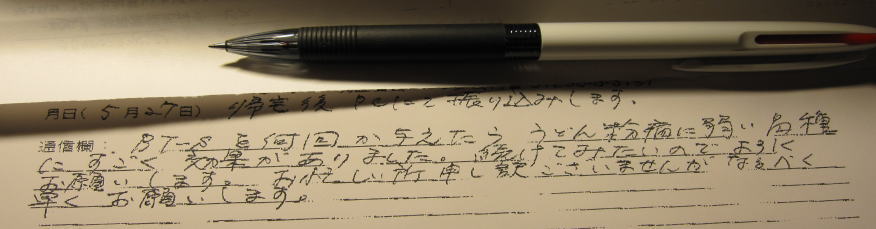 月日(5月27日) 帰宅後PCにて振り込みします。
通信欄: BT-Sを何回か与えたら、うどん粉病に弱い品種
にすごく効果がありました。続けてみたいのでよろしく
お願いします。お忙しい所申し訳ございませんがなるべく
早くお願いします。